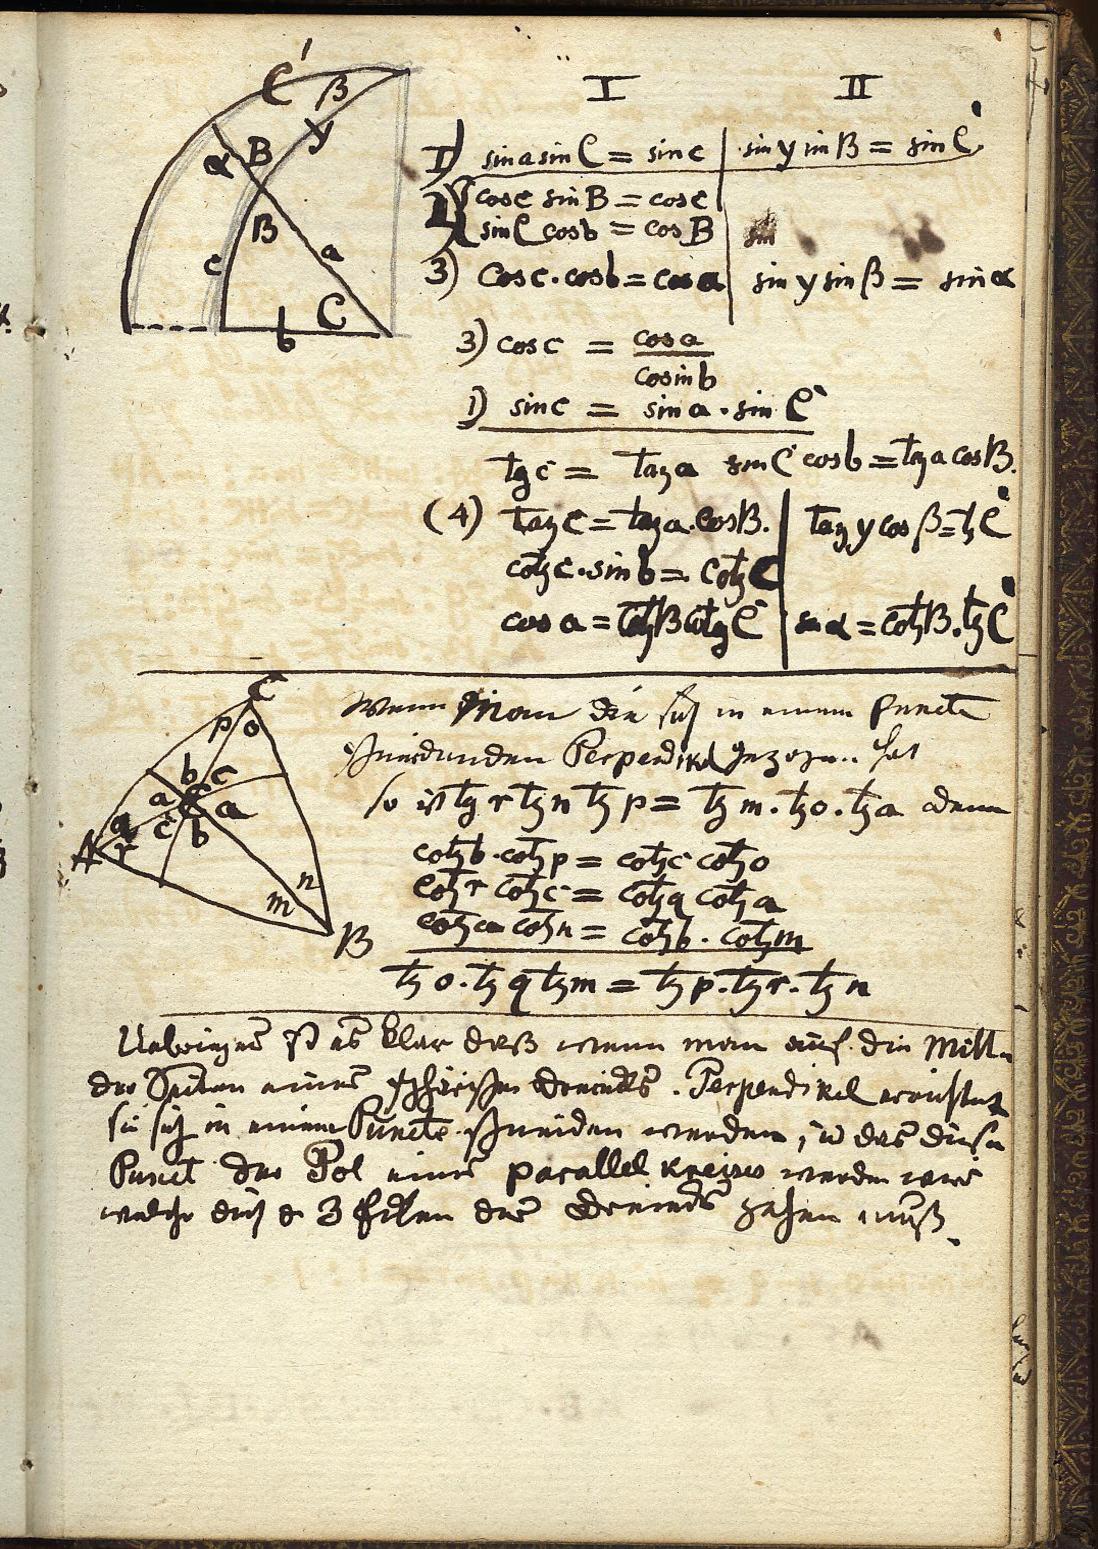 C' β
y
α B
B
c a
b C
I II
1) sin a sin C = sin c | sin y sin B = sin C'
2) cos c sin B = cos C
sin C cos b = cos B | sin
3) cos c . cos b = cos a | sin y sin β = sin α
3) cos c = cos a / cosin b
1) sin c = sin a . sin C
tg c = tang a sin C cos b = tang a cos B.
(4) tang c = tang a . cos B. | tang y cos β = tg C'
cotg c . sin b = cotg C
cos a = cotg B cotg C | sin α = cotg B . tg C'
C
p o
b c
a a
q c b
A r
n
m
B
Wenn Man die sich in einem Puncte
schneidenden Perpendikel gezogen hat
so ist tg r tg n tg p = tg m . tg o . tg a denn
cotg b . cotg p = cotg c cotg o
cotg r cotg c = cotg q cotg a
cotg a cotg n = cotg b . cotg m
tg o . tg q tg m = tg p . tg r . tg n
Uebrigens ist es klar daß wenn man auf die Mitte
der Seiten eines sphärischen Dreiecks Perpendikel errichtet
sie sich in einem Puncte schneiden werden, da diese
Punct der Pol eines parallel Kreises werden
welche durch d 3 des Dreiecks gehen muß.